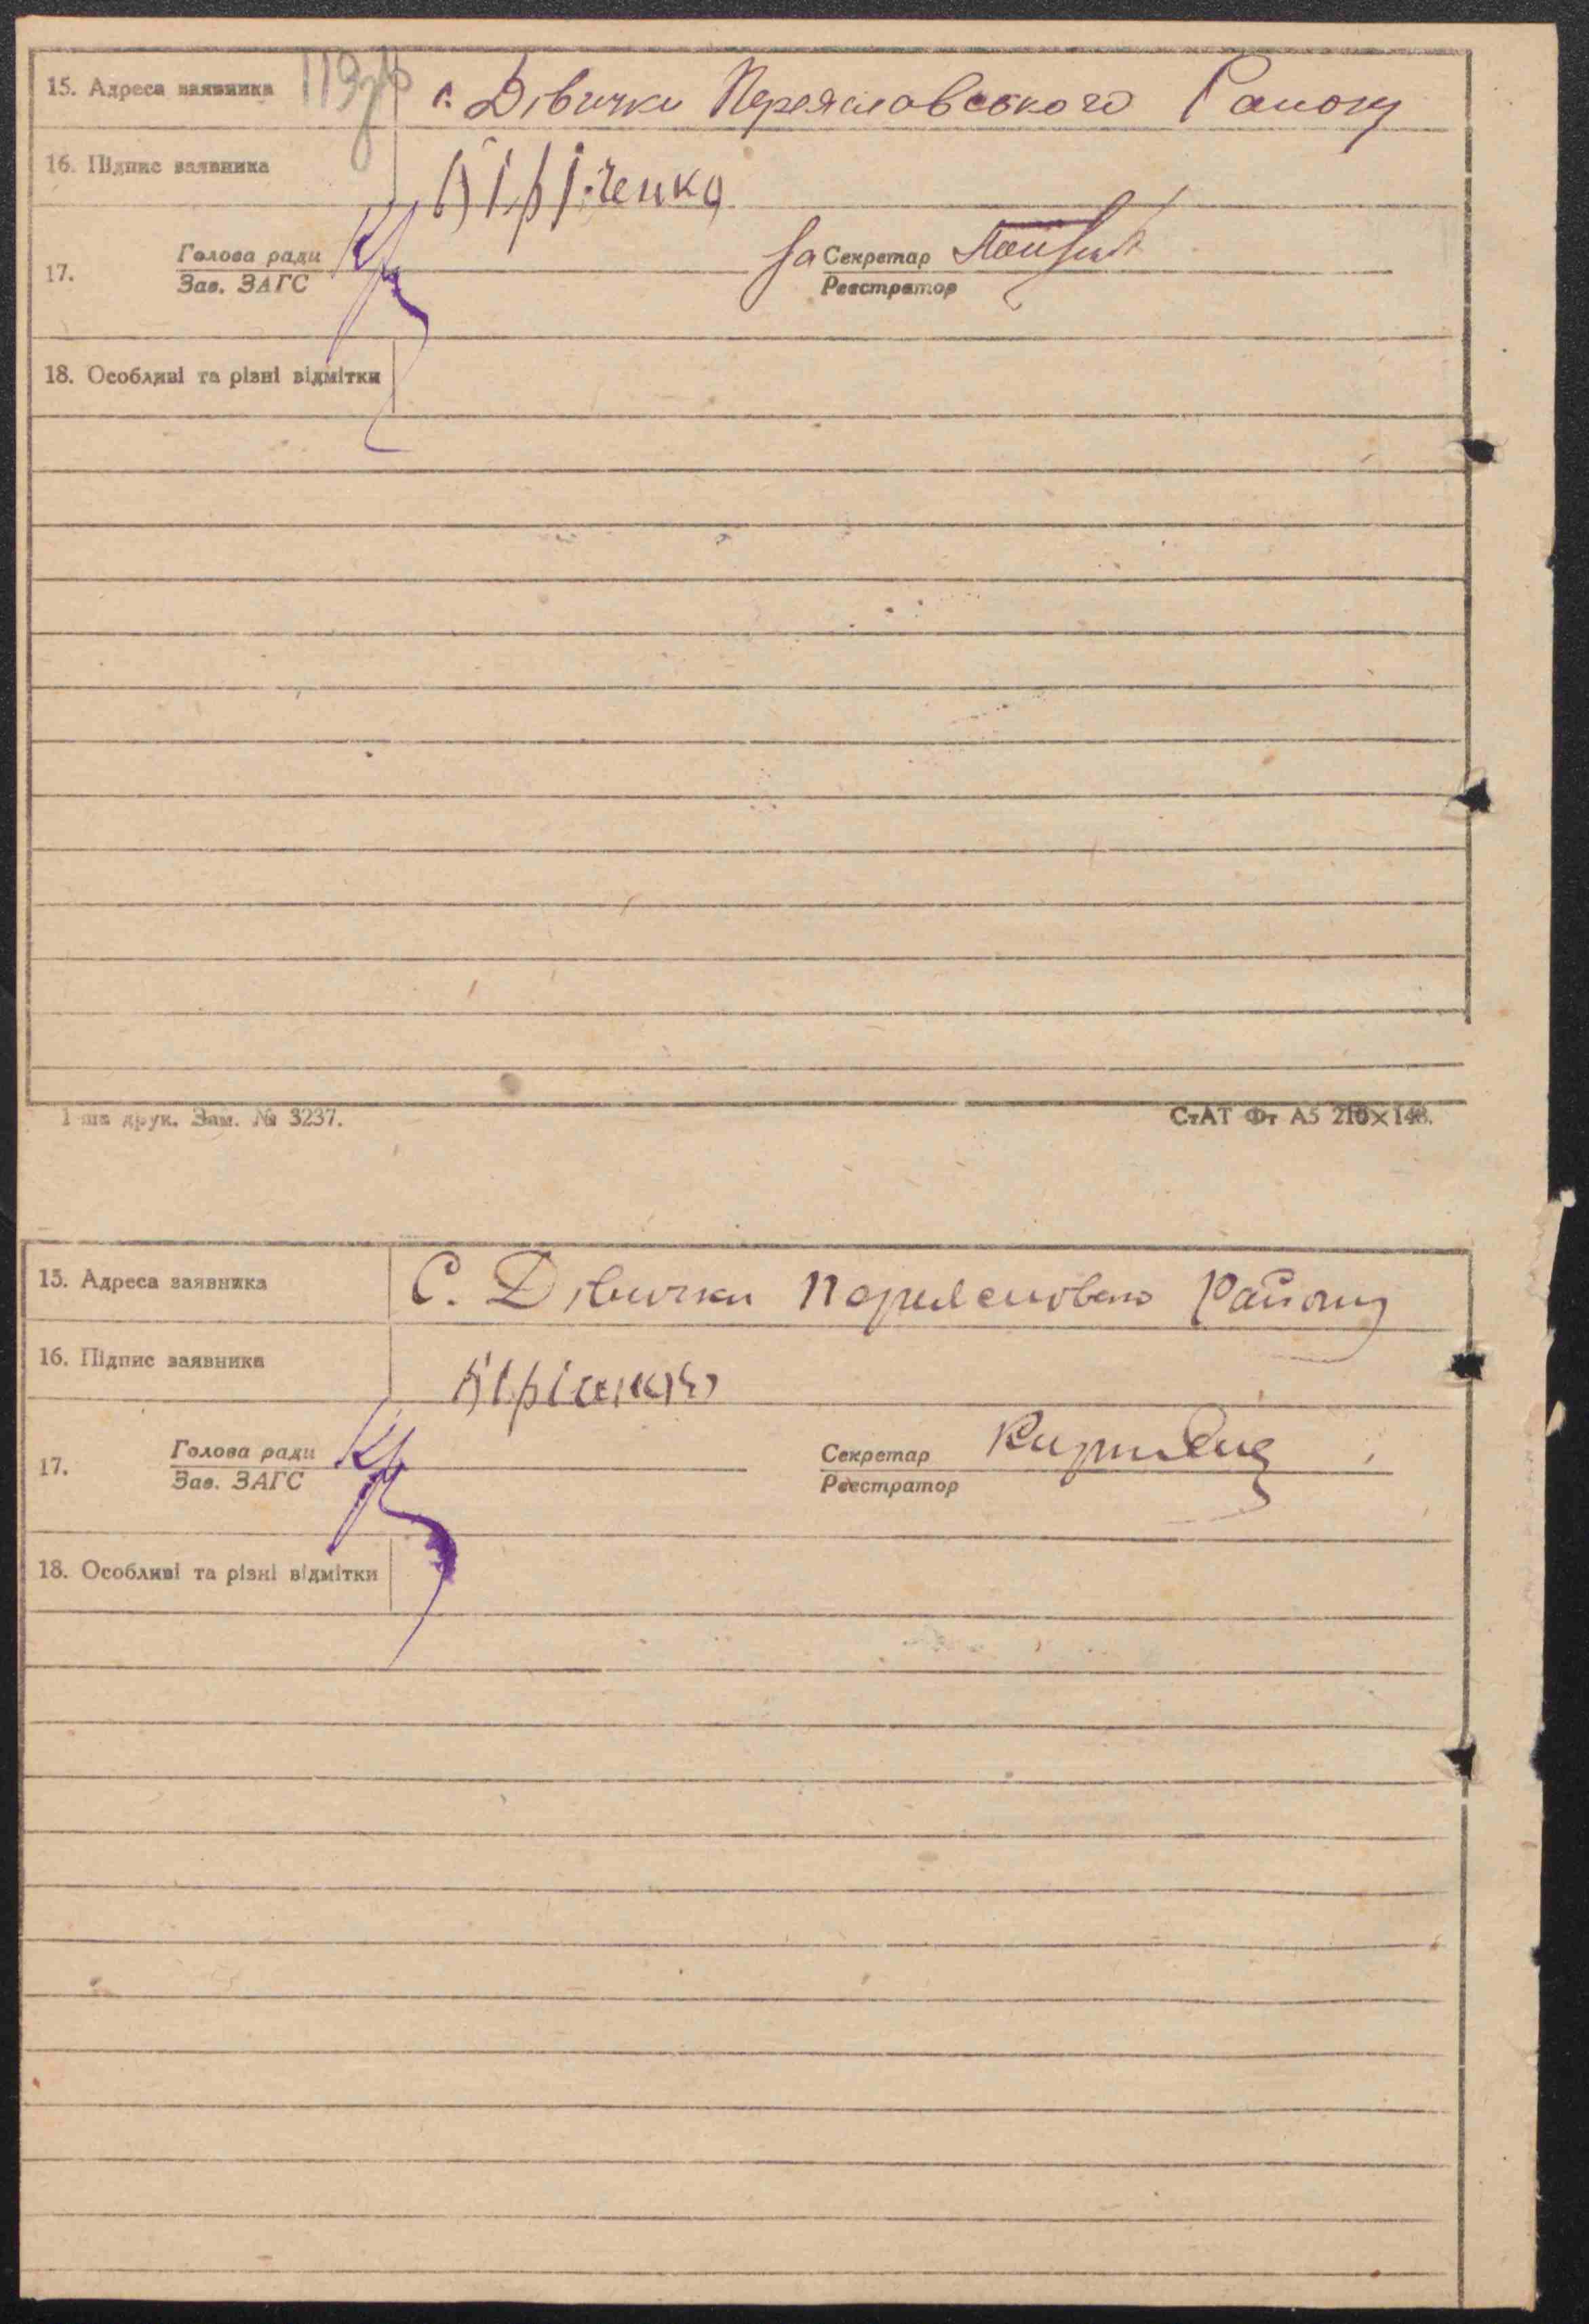 15. Адреса заявника с. Дівички Переяславського Району
16. Підпис заявника Кіріченко
17. Голова ради За Секретар
Зав. ЗАГС Реєстратор
18. Особливі та різні відмітки
1-ша друк. Зам. № 3237. СтАТ Фт А5 210×148.
15. Адреса заявника С. Дівички Району
16. Підпис заявника
17. Голова ради Секретар
Зав. ЗАГС Реєстратор
18. Особливі та різні відмітки